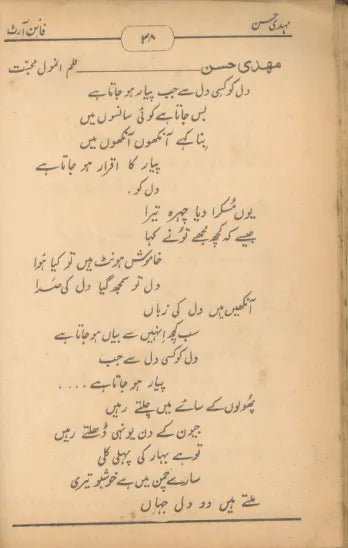 مہدی حسن ۳۸ فائن آرٹ
مہدی حسن فلم انمول محبت
دل کو کسی دل سے جب پیار ہو جاتا ہے
بس جاتا ہے کوئی سانسوں میں
بنا کہے آنکھوں آنکھوں میں
پیار کا اقرار ہو جاتا ہے
دل کو .
یوں مُسکرا دیا چہرہ تیرا
جیسے کہ کچھ مجھے تُو نے کہا
خاموش ہونٹ ہیں تو کیا ہُوا
دل تو سمجھ گیا دل کی صدا
آنکھیں ہیں دل کی زباں
سب کچھ اِنہیں سے بیاں ہو جاتا ہے
دل کو کسی دل سے جب
پیار ہو جاتا ہے ....
پھُولوں کے سائے میں چلتے رہیں
جیون کے دن یونہی ڈھلتے رہیں
تو ہے بہار کی پہلی کلی
سارے چمن میں ہے خوشبو تیری
ملتے ہیں دو دل جہاں